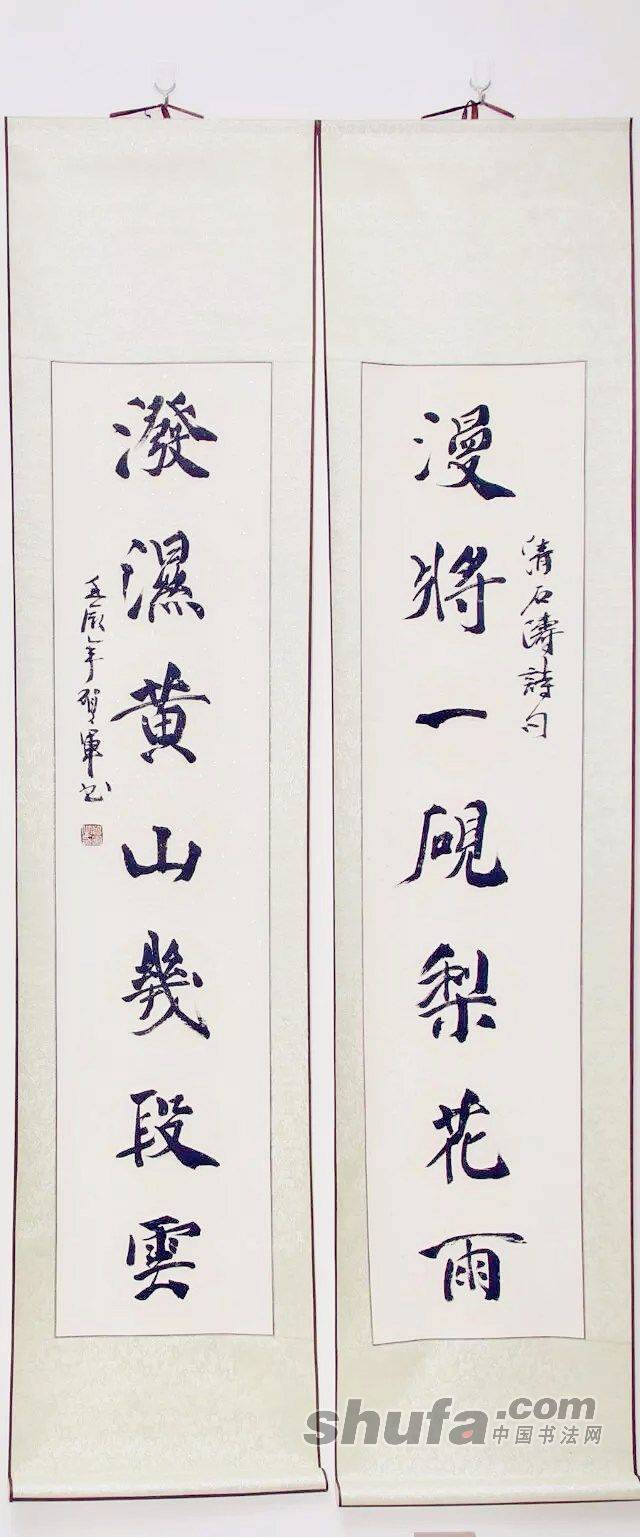 漫將一硯梨花雨
清石濤詩句
潑濕黃山幾段雲
壬辰年賀軍书
shufa.com
中国书法网